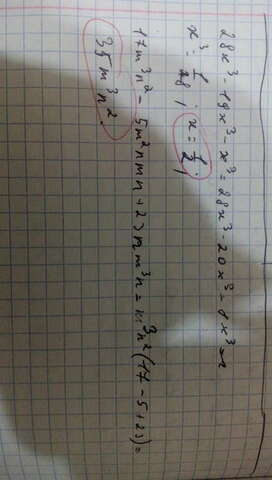 28x³ - 19x³ - x³ = 28x³ - 20x³ = 8x³ = 1
x³ = 1/8 ; x = 1/2 ;
17m³n² - 5m²nmn + 23nm³n = m³n²(17 - 5 + 23) =
35m³n²